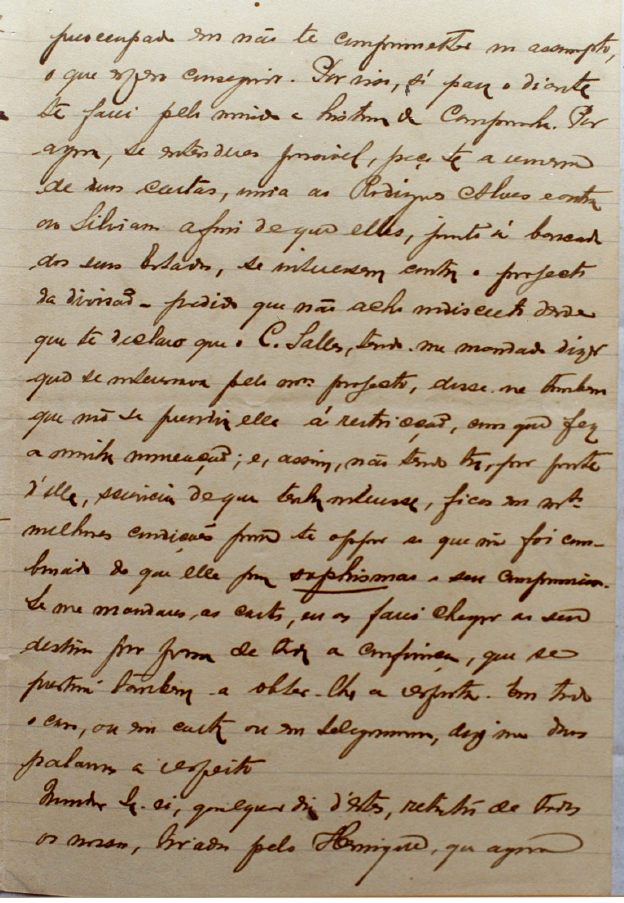 preoccupado em não te comprometter no assumpto,
o que espero conseguir. Por isso, só para o diante
te farei pelo miudo a historia de Campanha. Por
agora, se entenderes possivel, peço-te a remessa
de duas cartas, uma ao Rodrigues Alves e outra
ao Silviano afim de que elles, junto á bancada
dos seus Estados, se interessem contra o projecto
da divisão - pedido que não acho indiscreto desde
que te declaro que o C. Salles, tendo-me mandado dizer
que se interessava pelo projecto, disse-me tambem
que não se prendia elle á restricção, com que fez
a minha nomeação; e, assim, não tendo tu, por parte
d'elle, sciencia de que tenha interesse, ficas em mtº
melhores condições para te oppor ao que não foi com-
binado do que elle para sophismar o seu compromisso.
Se me mandares, as cartas, eu as farei chegar ao seu
destino por forma de toda a confiança, que se
prestará tambem a obter-lhe a resposta. Em todo
o caso, ou em carta ou em telegramma, diz-me duas
palavras a respeito
Mandar-te-ei, qualquer dia d'estes, retrato de todos
os nossos, tirado pelo Henrique, que agora